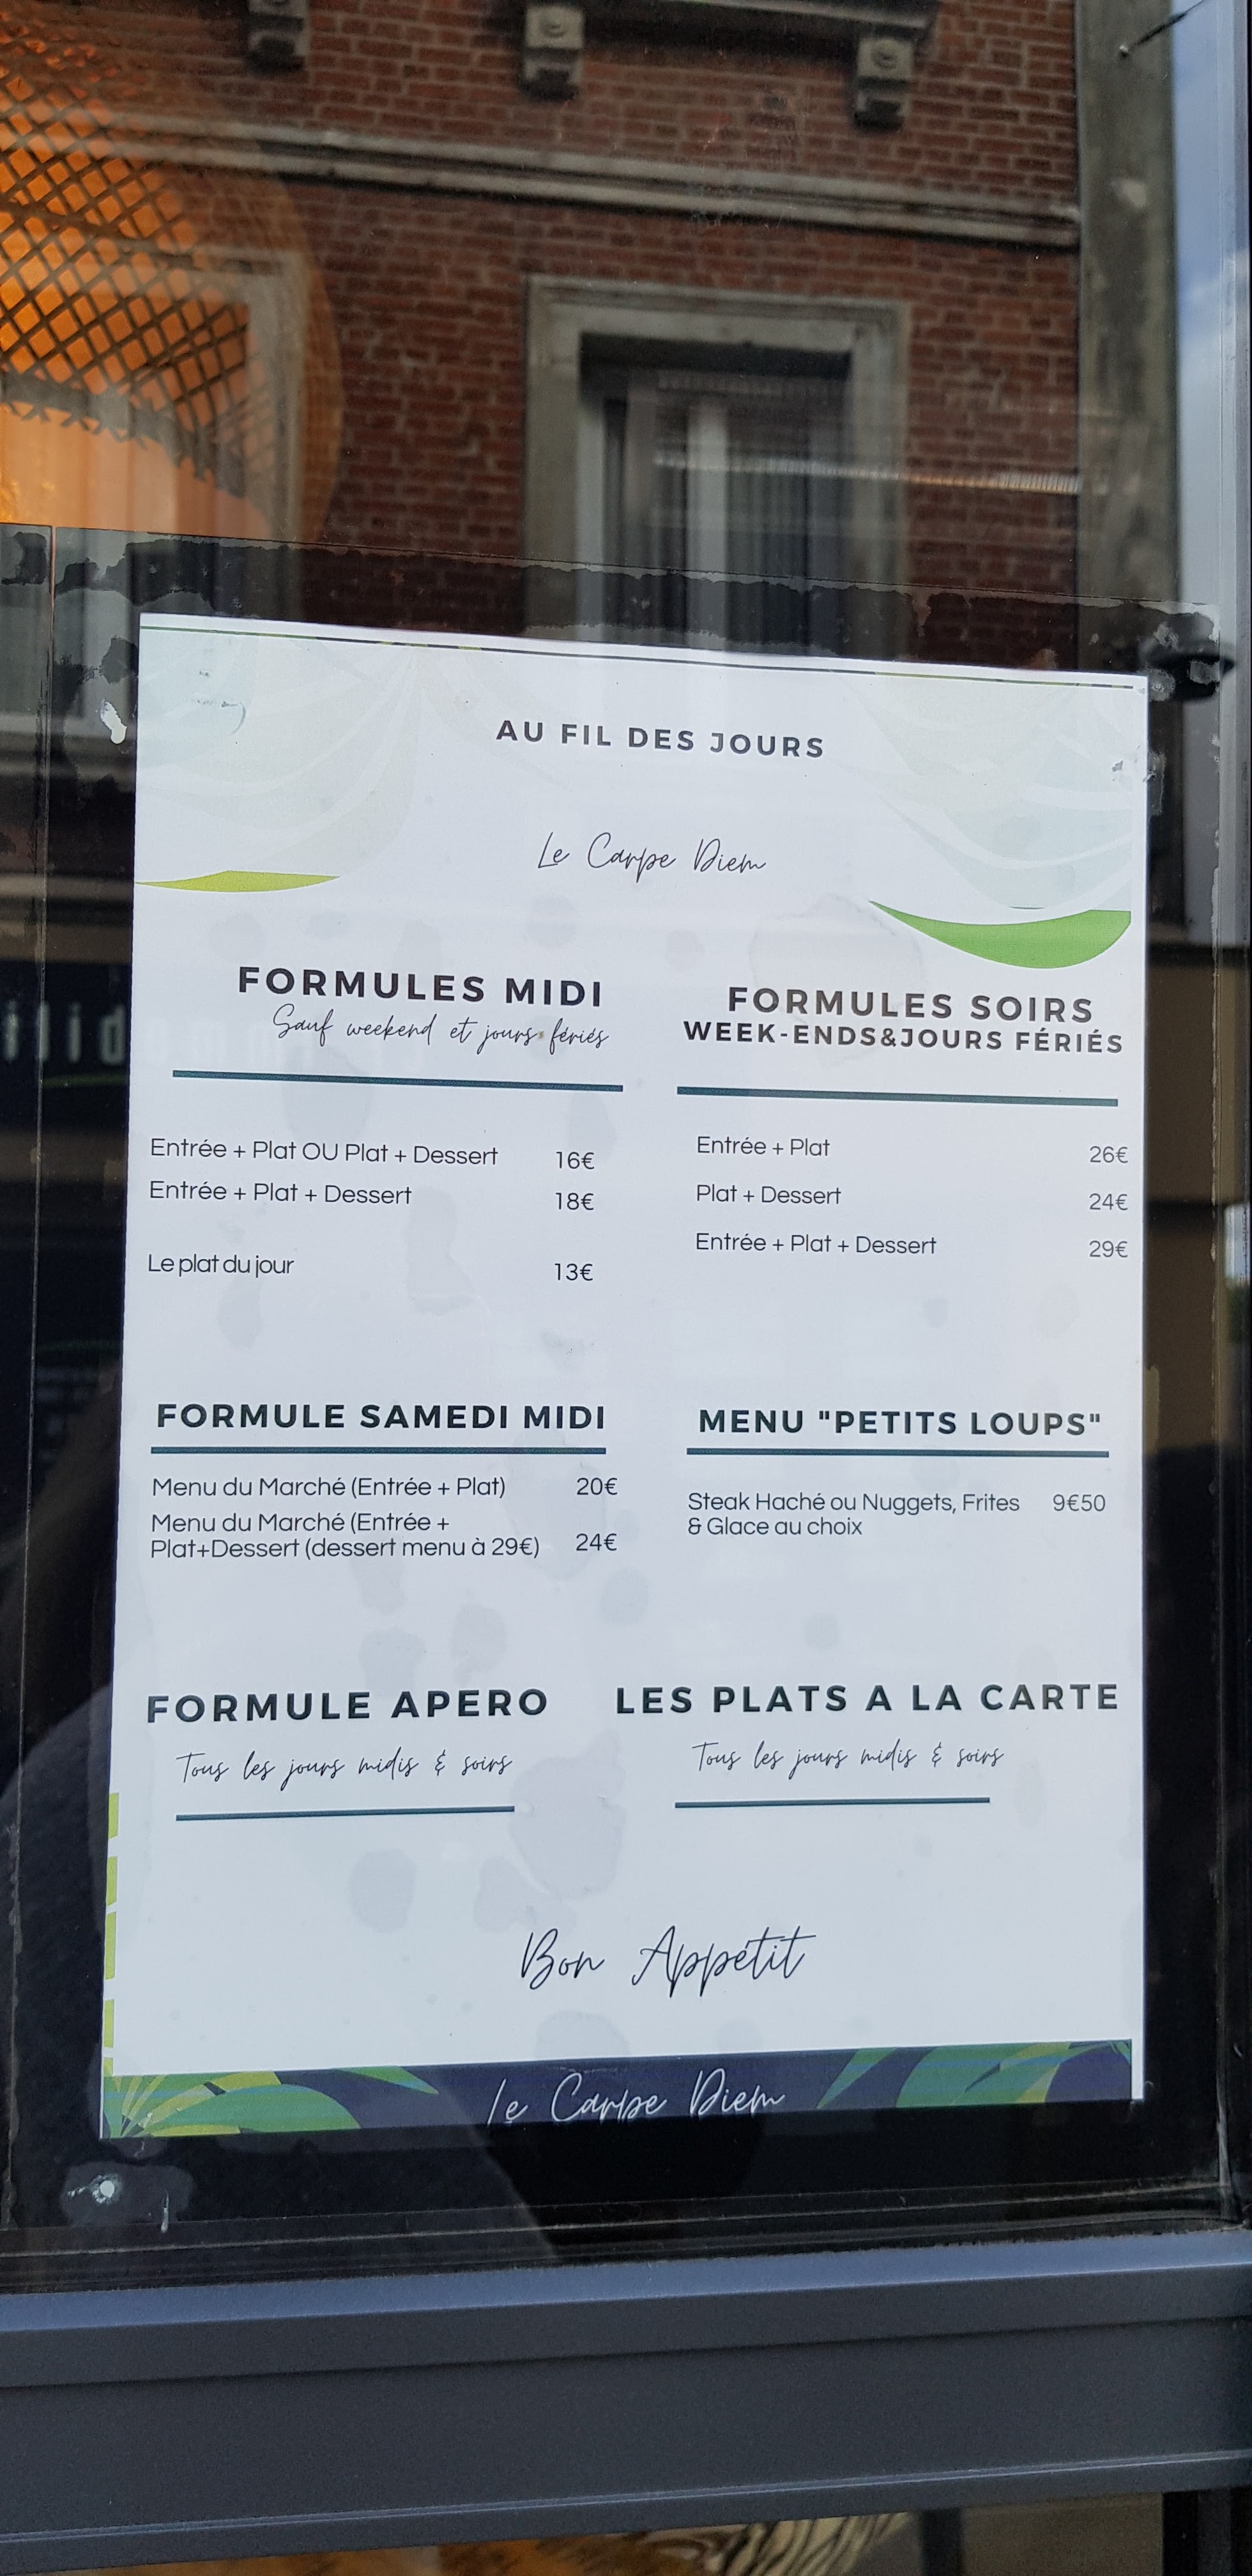 AU FIL DES JOURS
Le Carpe Diem
FORMULES MIDI
Sauf weekend et jours fériés
Entrée + Plat OU Plat + Dessert 16€
Entrée + Plat + Dessert 18€
Le plat du jour 13€
FORMULES SOIRS
WEEK-ENDS&JOURS FÉRIÉS
Entrée + Plat 26€
Plat + Dessert 24€
Entrée + Plat + Dessert 29€
FORMULE SAMEDI MIDI
Menu du Marché (Entrée + Plat) 20€
Menu du Marché (Entrée +
Plat+Dessert (dessert menu à 29€) 24€
MENU "PETITS LOUPS"
Steak Haché ou Nuggets, Frites 9€50
& Glace au choix
FORMULE APERO
Tous les jours midis & soirs
LES PLATS A LA CARTE
Tous les jours midis & soirs
Bon Appétit
Le Carpe Diem